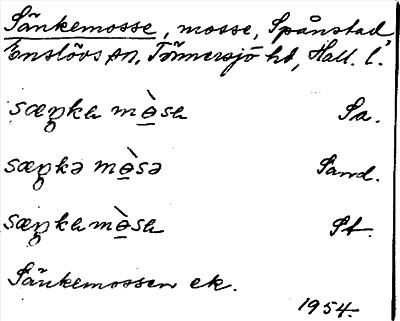 Sänkemosse, mosse, Spånstad
Enslövs sn, Tönnersjö hd, Hall. l.
sæŋka mòsa Sa.
sæŋkə mòsə Sand.
sæŋka mòsa St.
Sänkemossen ek.
1954.